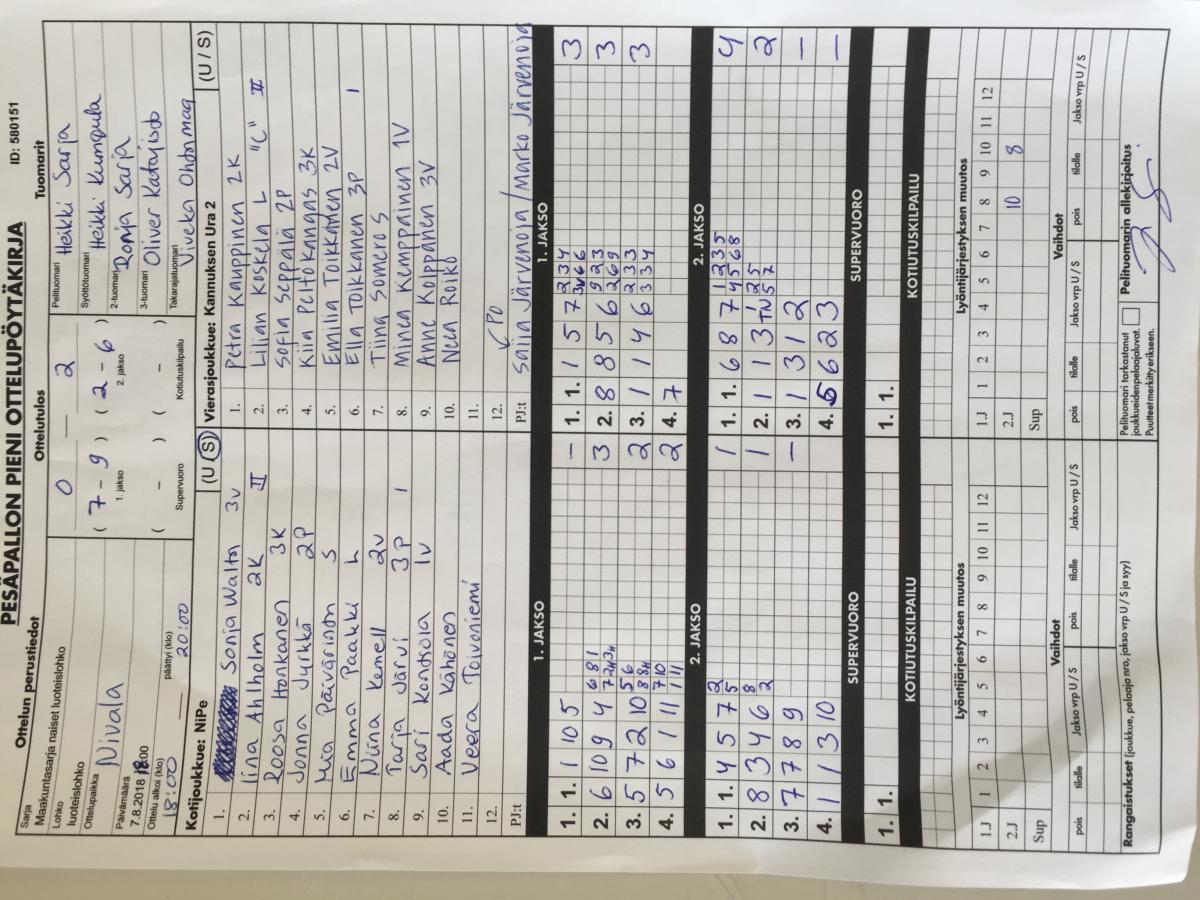 PESÄPALLON PIENI OTTELUPÖYTÄKIRJA ID: 580151
Ottelun perustiedot Ottelutulos Tuomarit
Sarja
Maakuntasarja naiset luoteislohko
Lohko
luoteislohko
Ottelupaikka Nivala
Päivämäärä
7.8.2018 18:00
Ottelu alkoi (klo) päättyi (klo)
18:00 20:00
0 — 2
( 7 - 9 ) ( 2 - 6 )
1. jakso 2. jakso
( - ) ( - )
Supervuoro Kotiutuskilpailu
Pelituomari Heikki Sarja
Syöttötuomari Heikki Kumpula
2-tuomari Ronja Sarja
3-tuomari Oliver Katajisto
Takarajatuomari Viveka Ohtamaa
Kotijoukkue: NiPe (U / S)
1. Sonja Walton 3v
2. Iina Ahlholm 2K II
3. Roosa Honkanen 3K
4. Jonna Jyrkkä 2P
5. Mia Päivärinta S
6. Emma Paakki L
7. Niina Kenell 2v
8. Tarja Järvi 3P I
9. Sari Kontiola 1v
10. Aada Kähönen
11. Veera Toivoniemi
12.
PJ:t
Vierasjoukkue: Kannuksen Ura 2 (U / S)
1. Petra Kauppinen 2K
2. Lilian Koskela L "C" II
3. Sofia Seppälä 2P
4. Kiia Peltokangas 3K
5. Emilia Tolkkanen 2V
6. Ella Tolkkanen 3P I
7. Tiina Somero S
8. Minea Kemppainen 1V
9. Anne Kolppanen 3V
10. Neea Roiko
11.
12. PO
PJ:t Saija Järvenoja / Marko Järvenoja
1. JAKSO
1. 1. 1 10 5 –
2. 6 10 9 4 3
3. 5 7 2 10 2
4. 5 6 1 11 2
2. JAKSO
1. 1. 4 5 7 1
2. 8 3 4 6 1
3. 7 7 8 9 –
4. 1 1 3 10
SUPERVUORO
1. 1.
KOTIUTUSKILPAILU
1. JAKSO
1. 1. 1 5 7 3
2. 8 8 5 6 3
3. 1 1 4 6 3
4. 7
2. JAKSO
1. 1. 6 8 7 4
2. 1 1 3 2
3. 1 3 1 2 –
4. 5 6 2 3 –
SUPERVUORO
1. 1.
KOTIUTUSKILPAILU
Lyöntijärjestyksen muutos
1.J 1 2 3 4 5 6 7 8 9 10 11 12
2.J
Sup
Vaihdot
pois tilalle Jakso vrp U / S pois tilalle Jakso vrp U / S
Lyöntijärjestyksen muutos
1.J 1 2 3 4 5 6 7 8 9 10 11 12
2.J 10 8
Sup
Vaihdot
pois tilalle Jakso vrp U / S pois tilalle Jakso vrp U / S
Rangaistukset (joukkue, pelaaja nro, jakso vrp U / S ja syy)
Pelituomari tarkastanut
joukkueiden pelaajaluvat.
Puutteet merkitty erikseen.
Pelituomarin allekirjoitus